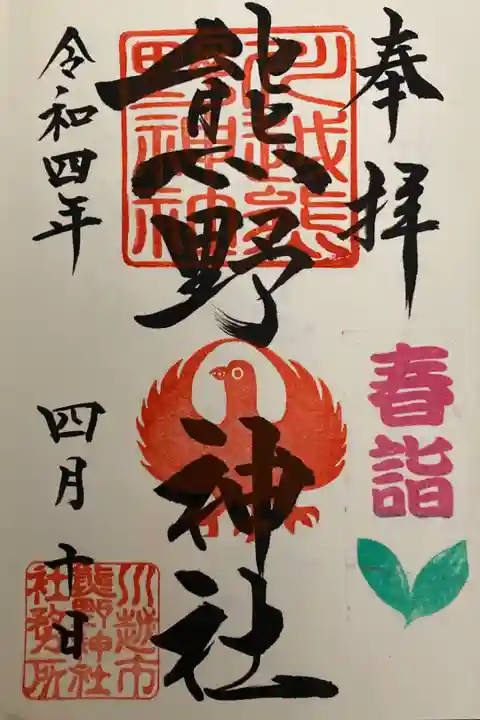 奉拝
春詣
川越熊野神社
熊野神社
令和四年
四月十日
川越市
熊野神社
社務所